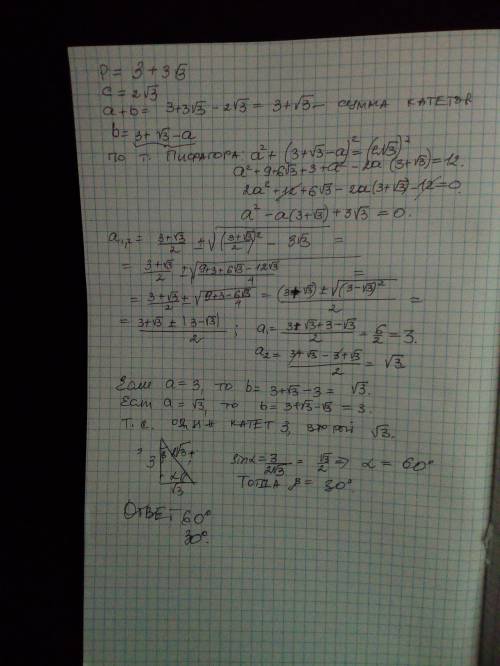 P = 3 + 3√3
c = 2√3
a + b = 3+3√3 - 2√3 = 3+√3 - СУММА КАТЕТОВ
b = 3+√3 - a
по т. ПИФАГОРА: a² + (3+√3-a)² = (2√3)²
a² + 9 + 6√3 + 3 + a² - 2a(3+√3) = 12.
2a² + 12 + 6√3 - 2a(3+√3) - 12 = 0.
a² - a(3+√3) + 3√3 = 0.
a₁,₂ = (3+√3)/2 ± √(((3+√3)/2)² - 3√3) =
= (3+√3)/2 ± √((9+3+6√3-12√3)/4) =
= (3+√3)/2 ± √((9+3-6√3)/4) = ((3+√3) ± √((3-√3)²))/2 =
= (3+√3 ± |3-√3|)/2 ; a₁ = (3+√3+3-√3)/2 = 6/2 = 3.
a₂ = (3+√3-3+√3)/2 = √3.
Если a = 3, то b = 3+√3-3 = √3.
Если a = √3, то b = 3+√3-√3 = 3.
Т.е. ОДИН КАТЕТ 3, второй √3.
3 β 2√3
α
√3
sinα = 3/(2√3) = √3/2 ⇒ α = 60°
Тогда β = 30°
ОТВЕТ 60°
30°.